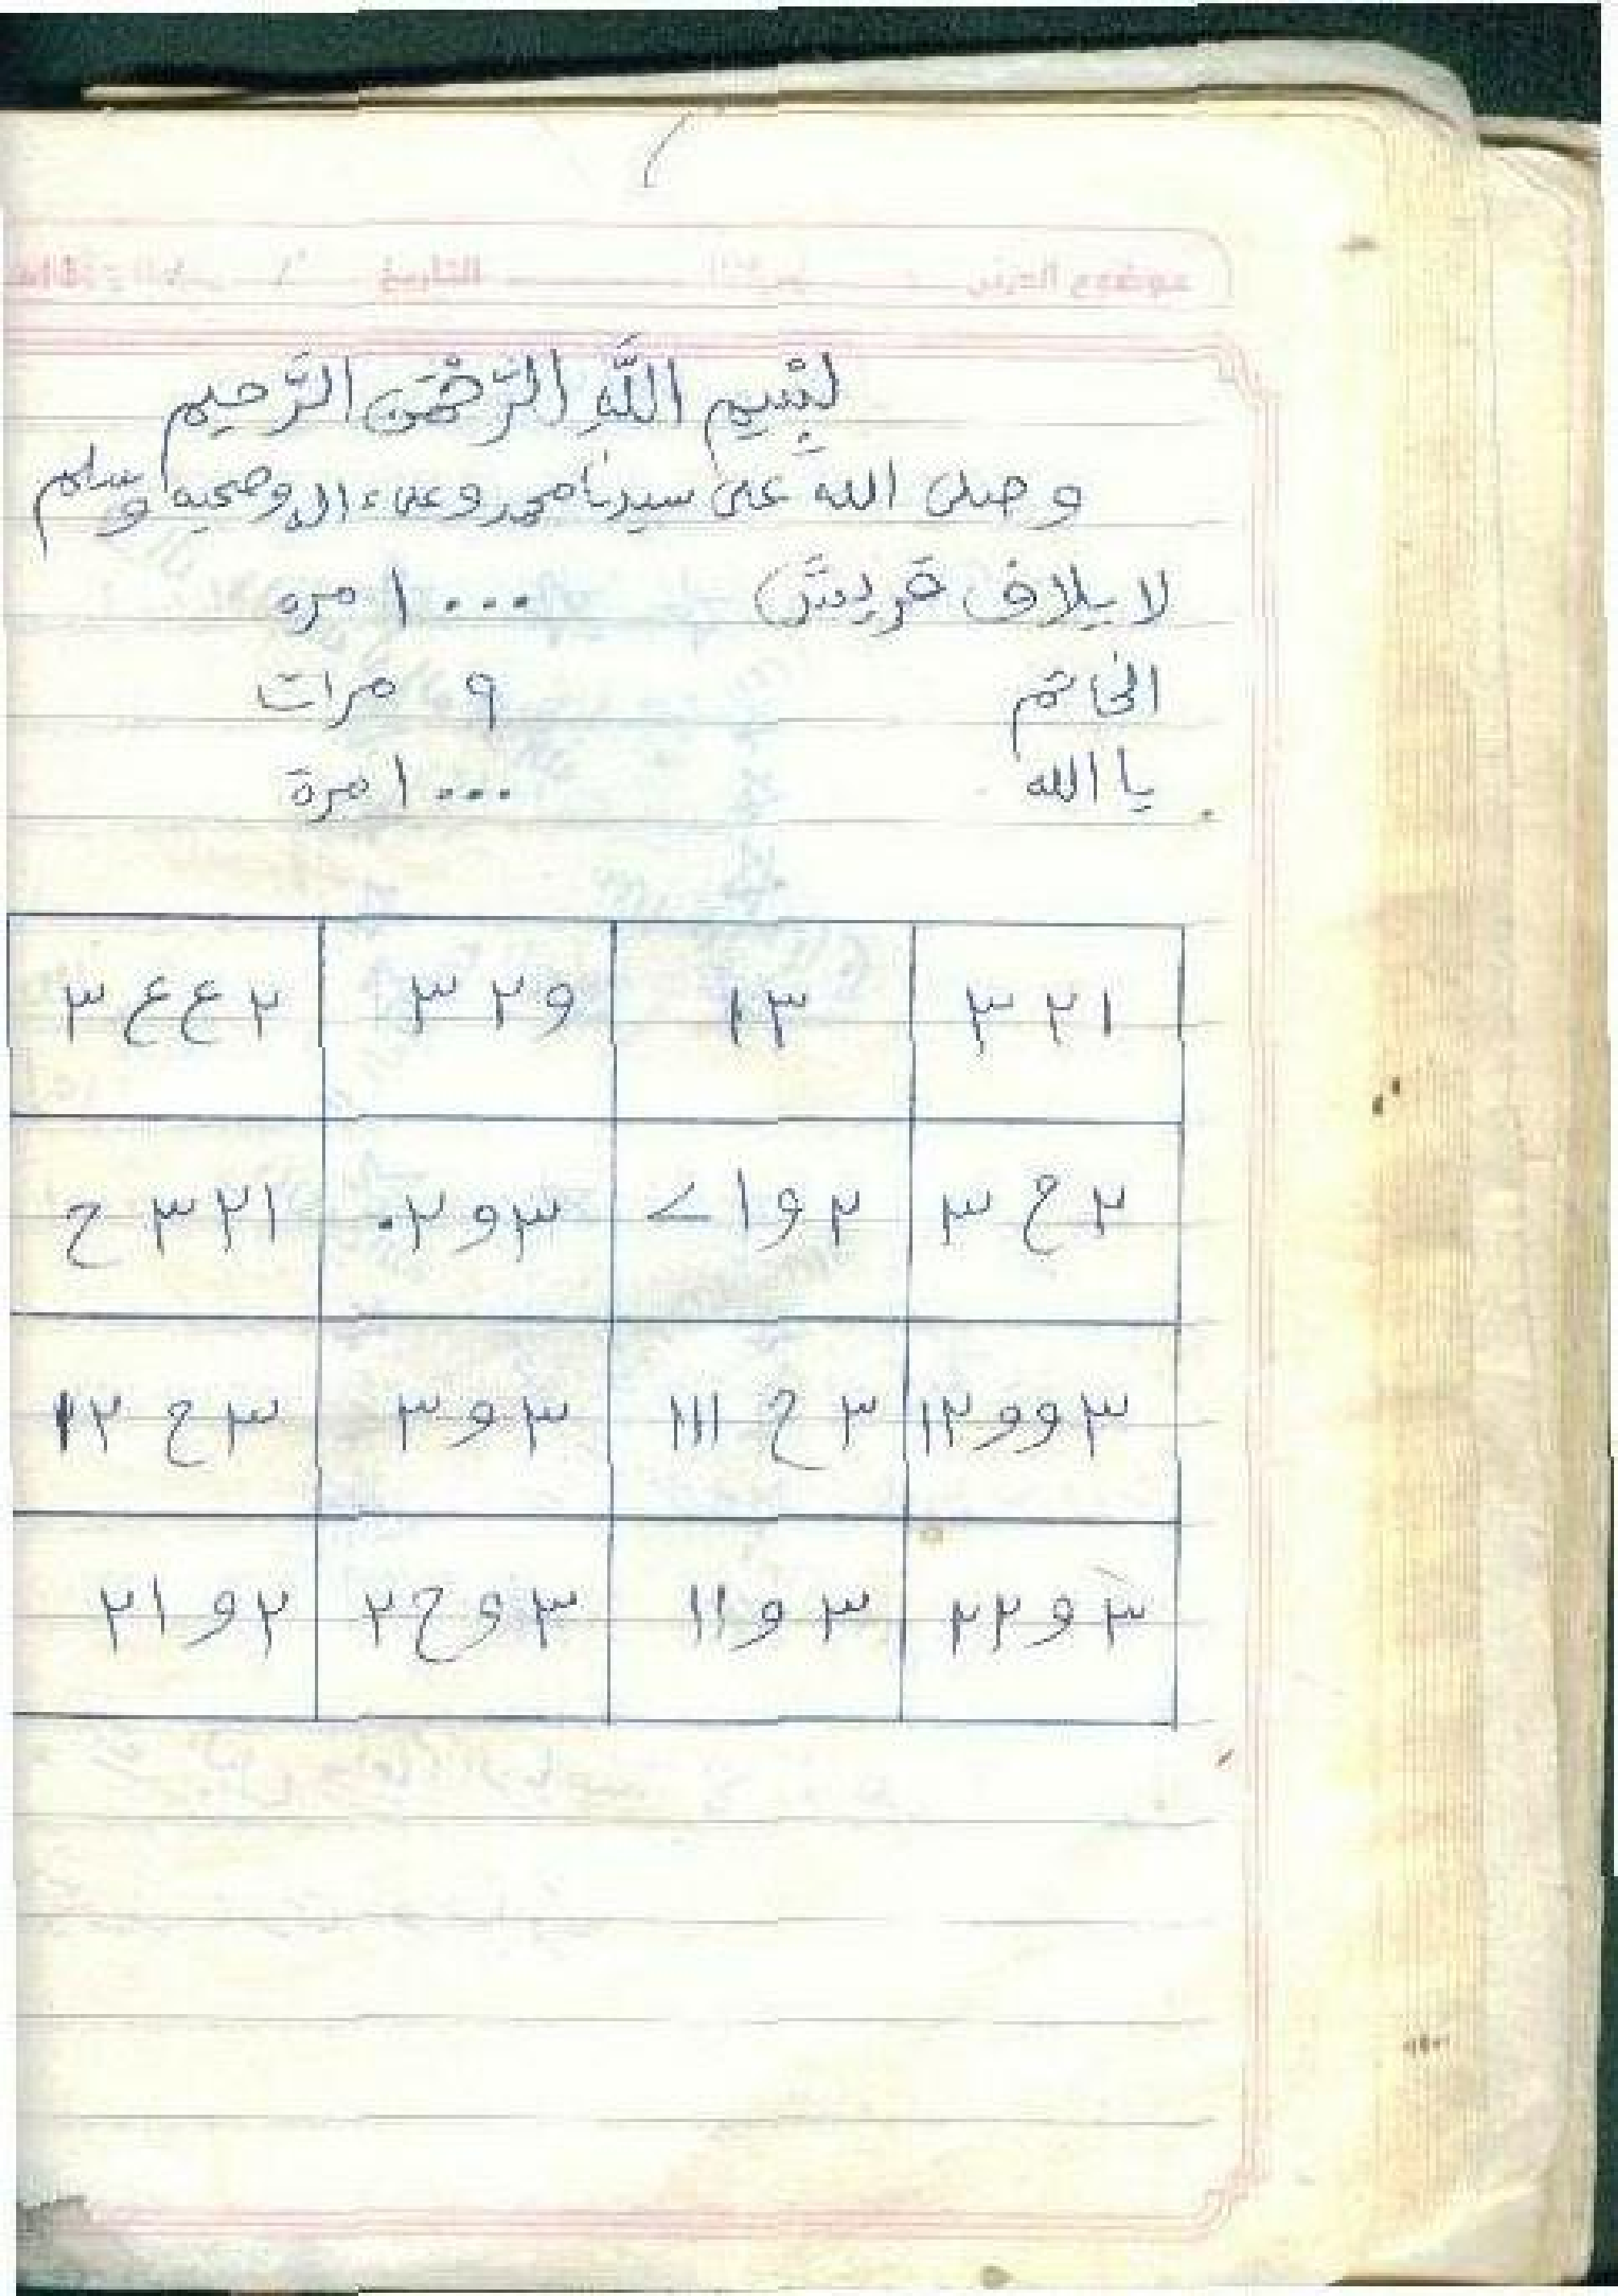 موضوع الدرس التاريخ
بِسْمِ اللَّهِ الرَّحْمَنِ الرَّحِيمِ
وصلى الله على سيدنا محمد وعلى اله وصحبه وسلم
لايلاف قريش ١٠٠٠ مره
الخاتم ٩ مرات
يا الله ١٠٠٠ مرة
٣ ٢ ١ ١٣ و ٢ ٣ ٢ ع ع ٣
٢ ح ٣ ٢ و ا > ٣ و ٢٠ ٣٢١ ح
٣ و و ١٢ ٣ ح ااا ٣ و ٣ ٣ ح ١٢
٣ و ٢٢ ٣ و ١١ ٣ و ح ٢ ٢ و ٢١